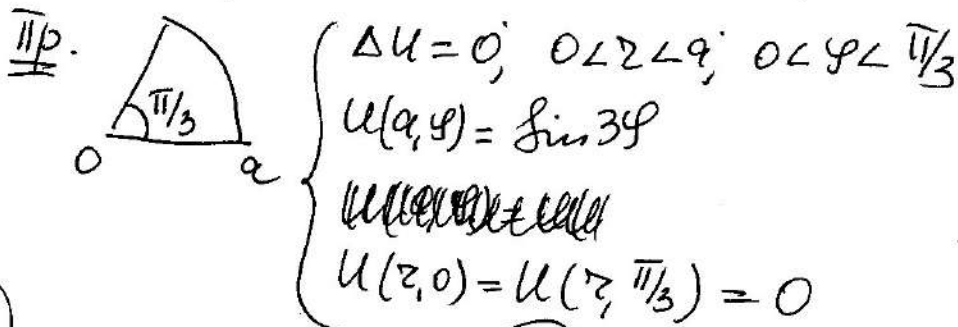 Пр.
π/3
0
a
Δu = 0; 0<r<a; 0<φ<π/3
u(a,φ) = sin3φ
u(r,0) = u(r,π/3) = 0